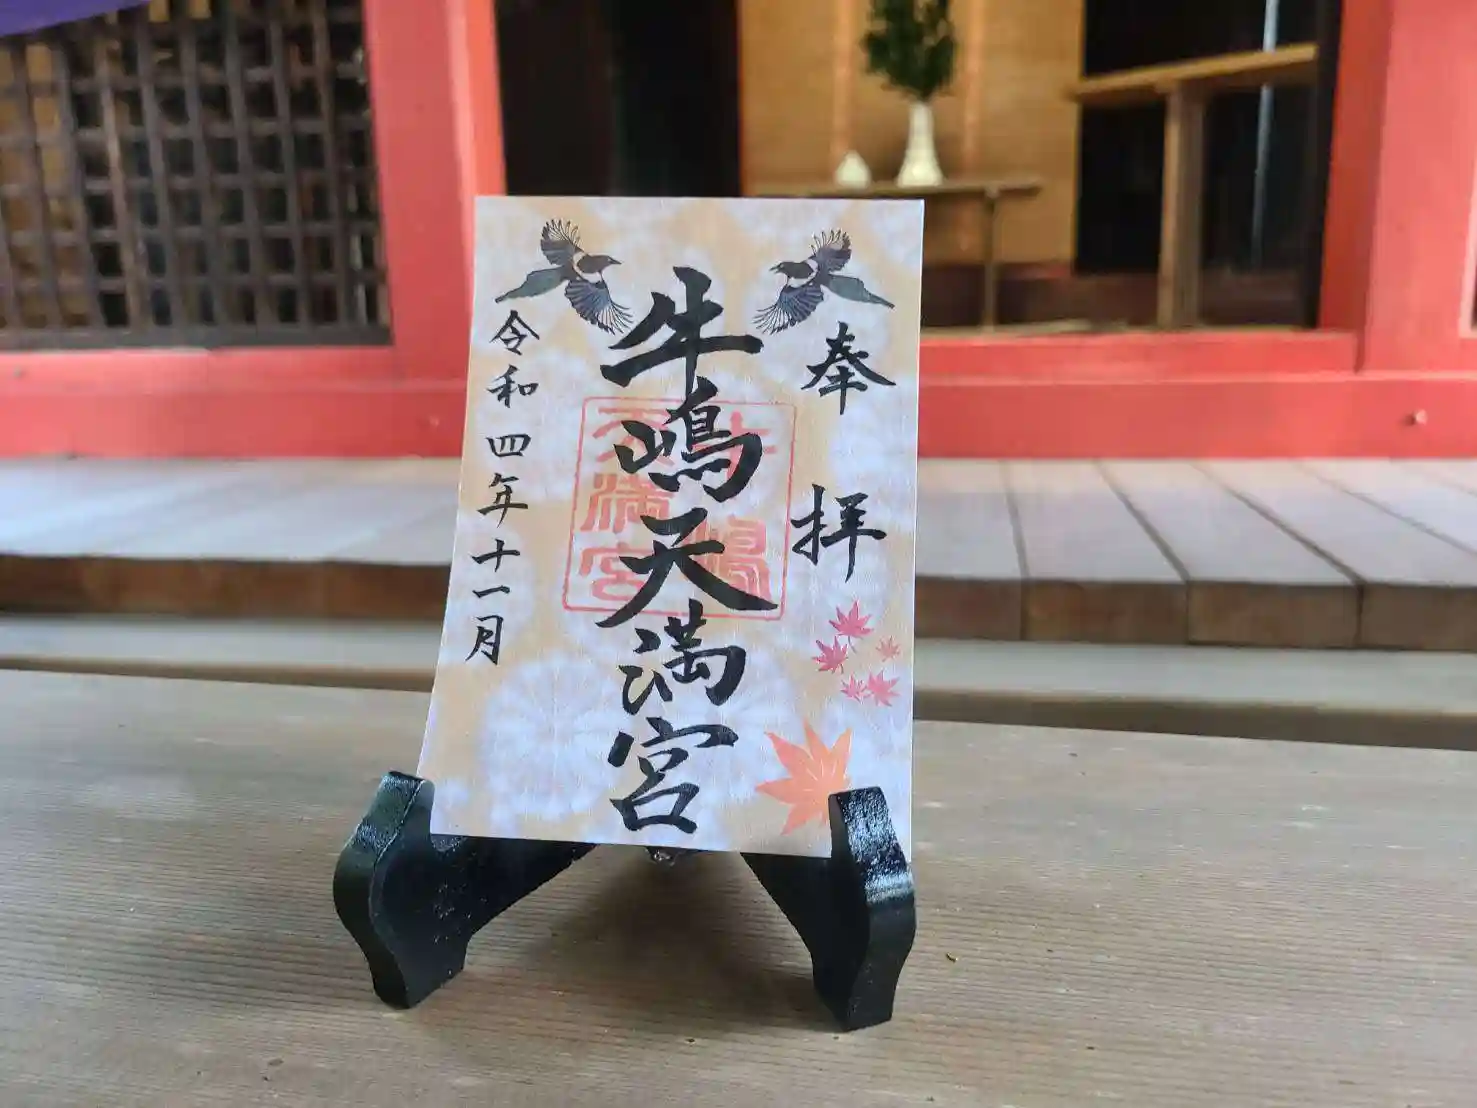 奉拝
牛嶋天満宮
牛嶋
天満宮
令和四年十一月